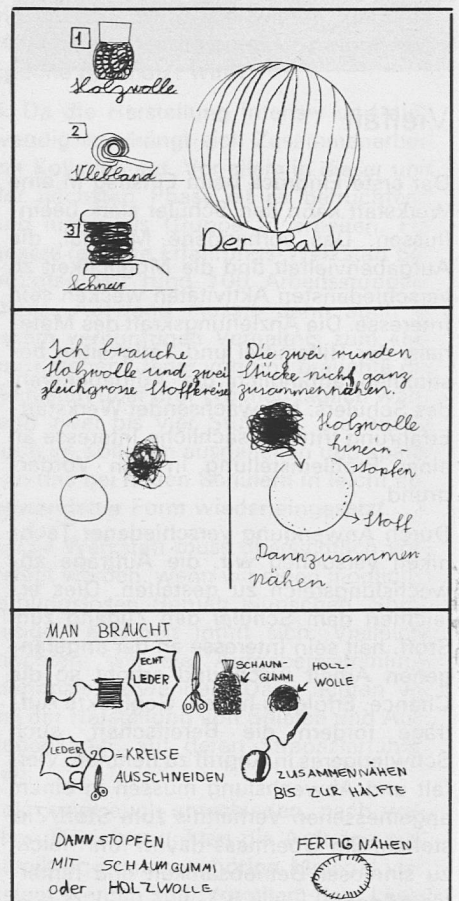 1
Holzwolle
2
Klebband
3
Schnur
Der Ball
Ich brauche
Holzwolle und zwei
gleichgrosse Stoffkreise
Die zwei runden
Stücke nicht ganz
zusammennähen.
Holzwolle
hinein-
stopfen
Stoff
Dann zusammen
nähen
MAN BRAUCHT
ECHT
LEDER
SCHAUM-
GUMMI
HOLZ-
WOLLE
LEDER
-KREISE
AUSSCHNEIDEN
ZUSAMMENNÄHEN
BIS ZUR HÄLFTE
DANN STOPFEN
MIT SCHAUMGUMMI
oder HOLZWOLLE
FERTIG NÄHEN